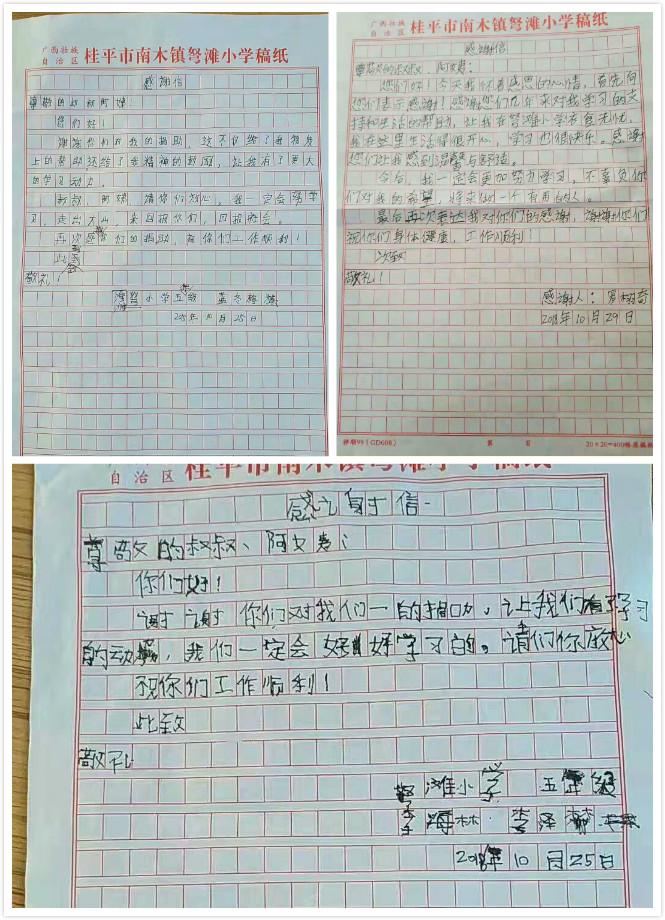 广西壮族
自治区 桂平市南木镇弩滩小学稿纸
感谢信
尊敬的叔叔阿姨:
你们好!
谢谢你们对我的捐助,这不仅给了我物质
上的帮助,还给了我精神的鼓励,让我有了更大
的学习动力。
叔叔,阿姨,请你们放心,我一定会努力学
习,走出大山,来回报你们,回报社会。
再次感谢你们的捐助,祝你们工作顺利!
此致
敬礼!
小学五年级
10月25日
广西壮族
自治区 桂平市南木镇弩滩小学稿纸
感谢信
尊敬的叔叔、阿姨:
您们好!今天我怀着感恩的心情,首先向
您们表示感谢!感谢您们几年来对我学习的支
持和生活的帮助,让我在弩滩小学衣食无忧,
我在这里生活得很开心,学习也很快乐。感谢
您们让我感到温馨与舒适。
今后,我一定会更加努力学习,不辜负你
们对我的希望,将来做一个有用的人。
最后再次表达我对你们的感谢,谢谢你们
祝你们身体健康,工作顺利!
此致
敬礼!
感谢人:罗
2018年10月29日
20×20=400
自治区 桂平市南木镇弩滩小学稿纸
感谢信
尊敬的叔叔、阿姨:
你们好!
谢谢你们对我们一的捐助,让我们有了学习
的动,我们一定会好好学习的。请们你放心
祝你们工作顺利!
此致
敬礼
滩小学 五年级
海林 李泽
2018年10月25日